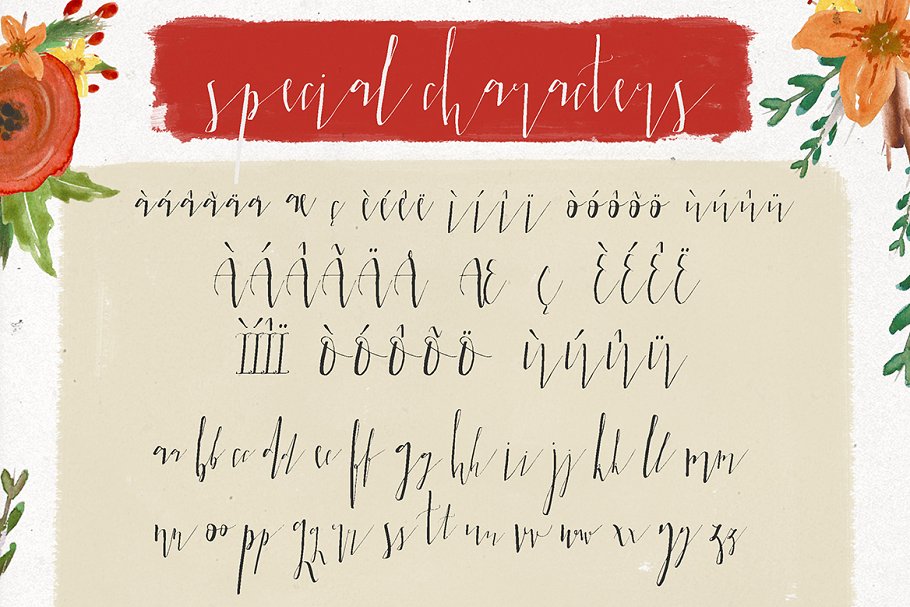 special characters
àáâãäå æ ç èéêë ìíîï òóôõö ùúûü
ÀÁÂÃÄÅ Æ Ç ÈÉÊË
ÌÍÎÏ ÒÓÔÕÖ ÙÚÛÜ
aa bb cc dd ee ff gg hh ii jj kk ll mm
nn oo pp qq rr ss tt uu vv ww xx yy zz